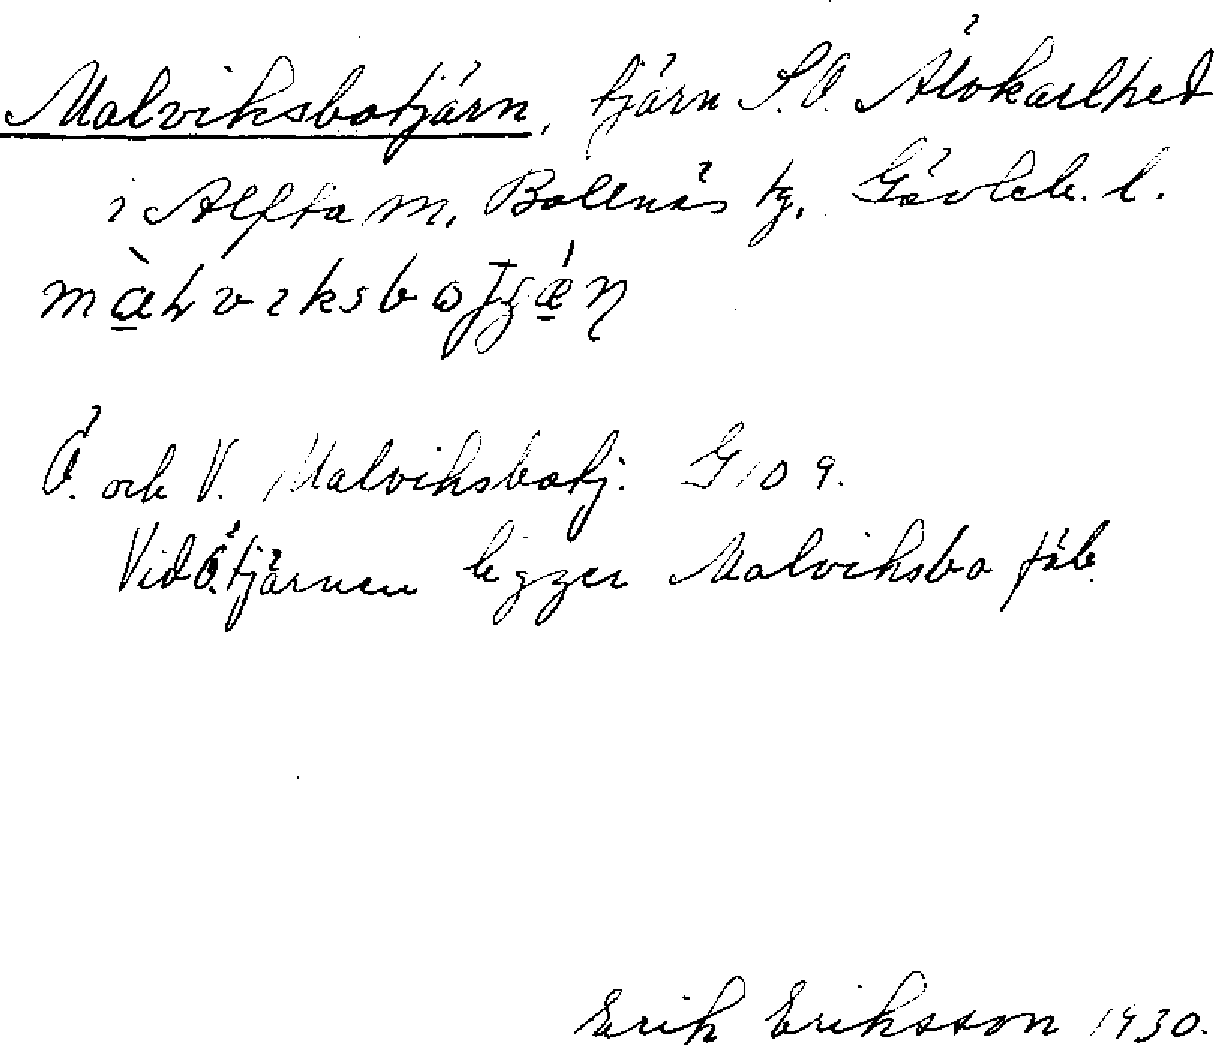 Malviksbotjärn, tjärn S.Ö. Älvkarlhed
i Alfta sn, Bollnäs tg, Gävleb. l.
Ö. och V. Malviksbotj. G 109.
Vid Ö. tjärnen ligger Malviksbo fäb.
Erik Eriksson 1930.